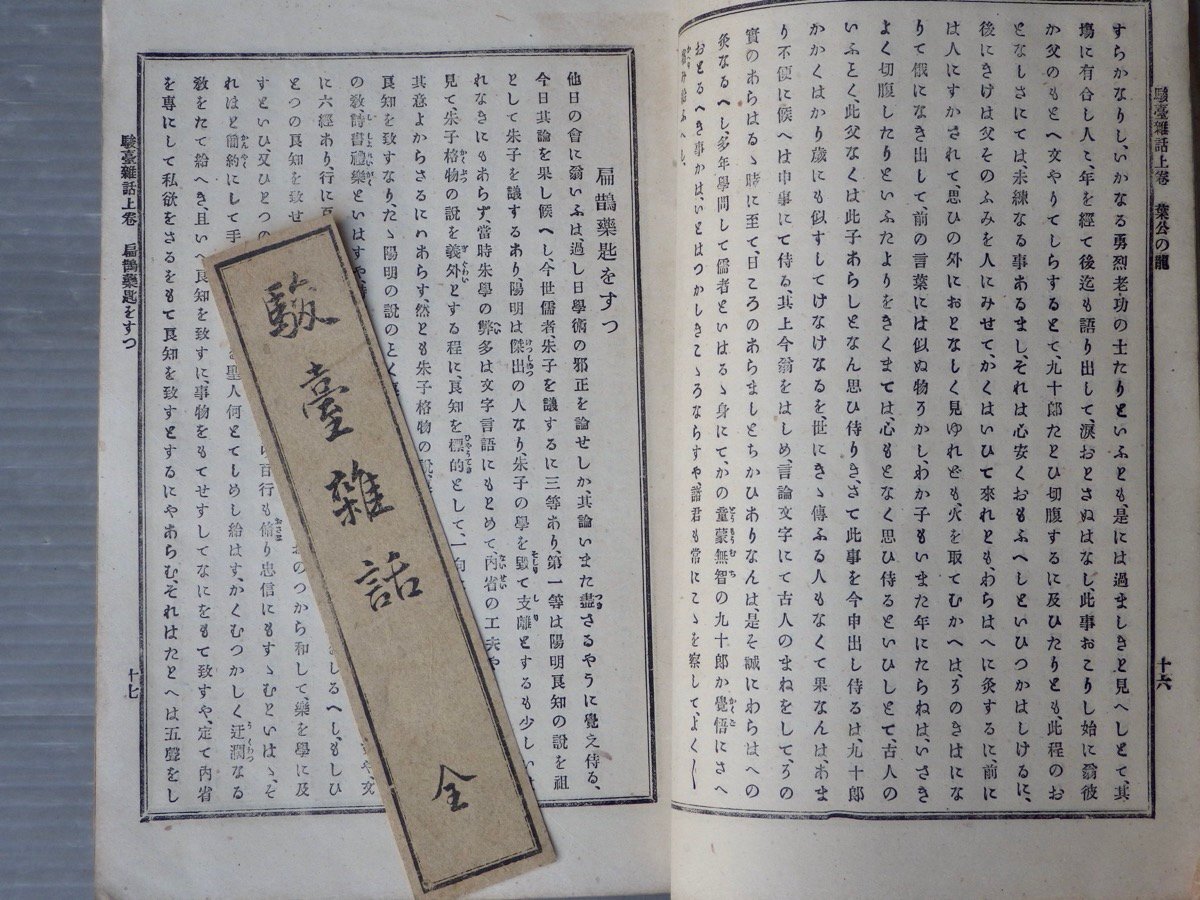 駿臺雜話上卷　葉公の龍
十六
すらかなりし、いかなる勇烈老功の士たりといふとも、是には過ましきと見へしとて、其
塲に有合し人〻、年を經て後迄も語り出して、淚おとさぬはなし、此事おこりし始に翁彼
か父のもとへ文やりてしらするとて、九十郎たとひ切腹するに及ひたりとも、此程のお
となしさにては、未練なる事あるまし、それは心安くおもふへしといひつかはしけるに、
後にきけは父そのふみを人にみせて、かくはいひて來れとも、わらはへに灸するに、前に
は人にすかされて、思ひの外におとなしく見ゆれとも、火を取てむかへは、そのきはにな
りて俄になき出して、前の言葉には似ぬ物そかし、わか子もいまた年にたらねは、いさき
よく切腹したりといふたよりをきくまては、心もとなく思ひ侍るといひしとて、古人の
いふとく、此父なくは此子あらしとなん思ひ侍りき、さて此事を今申出し侍るは、九十郎
かかくはかり歲にも似すしてけなけなるを、世にきゝ傳ふる人もなくて果なんは、あま
り不便に候へは申事にて侍る、其上今翁をはしめ、言論文字にて古人のまねをして、その
實のあらはるゝ時に至て、日ころのあらましとちかひありなんは、是そ誠にわらはへの
灸なるへし、多年學問して儒者といはるゝ身にてかの童蒙無智の九十郎か覺悟にさへ
おとるへき事かは、いとはつかしきこゝろならすや、諸君も常にこゝを察して、よく〱
扁鵲藥匙をすつ
他日の會に翁いふは過し日學術の邪正を論せしか、其論いまた盡さるやうに覺え侍る、
今日其論を果し候へし、今世儒者朱子を議するに三等あり、第一等は陽明良知の說を祖
として朱子を議するあり、陽明は傑出の人なり、朱子の學を毀て支離とするも少しいは
れなきにもあらす、當時朱學の弊多は文字言語にもとめて、內省の工夫や
見て朱子格物の說を義外とする程に、良知を標的として、一向
其意よからさるにハあらす、然とも朱子格物の說
良知を致すなり、たゝ陽明の說のとく
の敎詩書禮樂といはすや
に六經あり、行に百
とつの良知を致せ
すといひ、又ひとつの
れはと簡約にして手
敎をたて給へき、且いへ良知を致すに、事物をもてせすしてなにをもて致すや、定て內省
を專にして私欲をさるをもて良知を致すとするにやあらむ、それはたとへは五聲をし
や、文
おのつから和して、樂を學に及
百行も脩り忠信にもすゝむといはゝ、そ
る聖人何とてしめし給はす、かくむつかしく迂濶なる
駿臺雜話上卷　扁鵲藥匙をすつ
十七
駿臺雜話　全